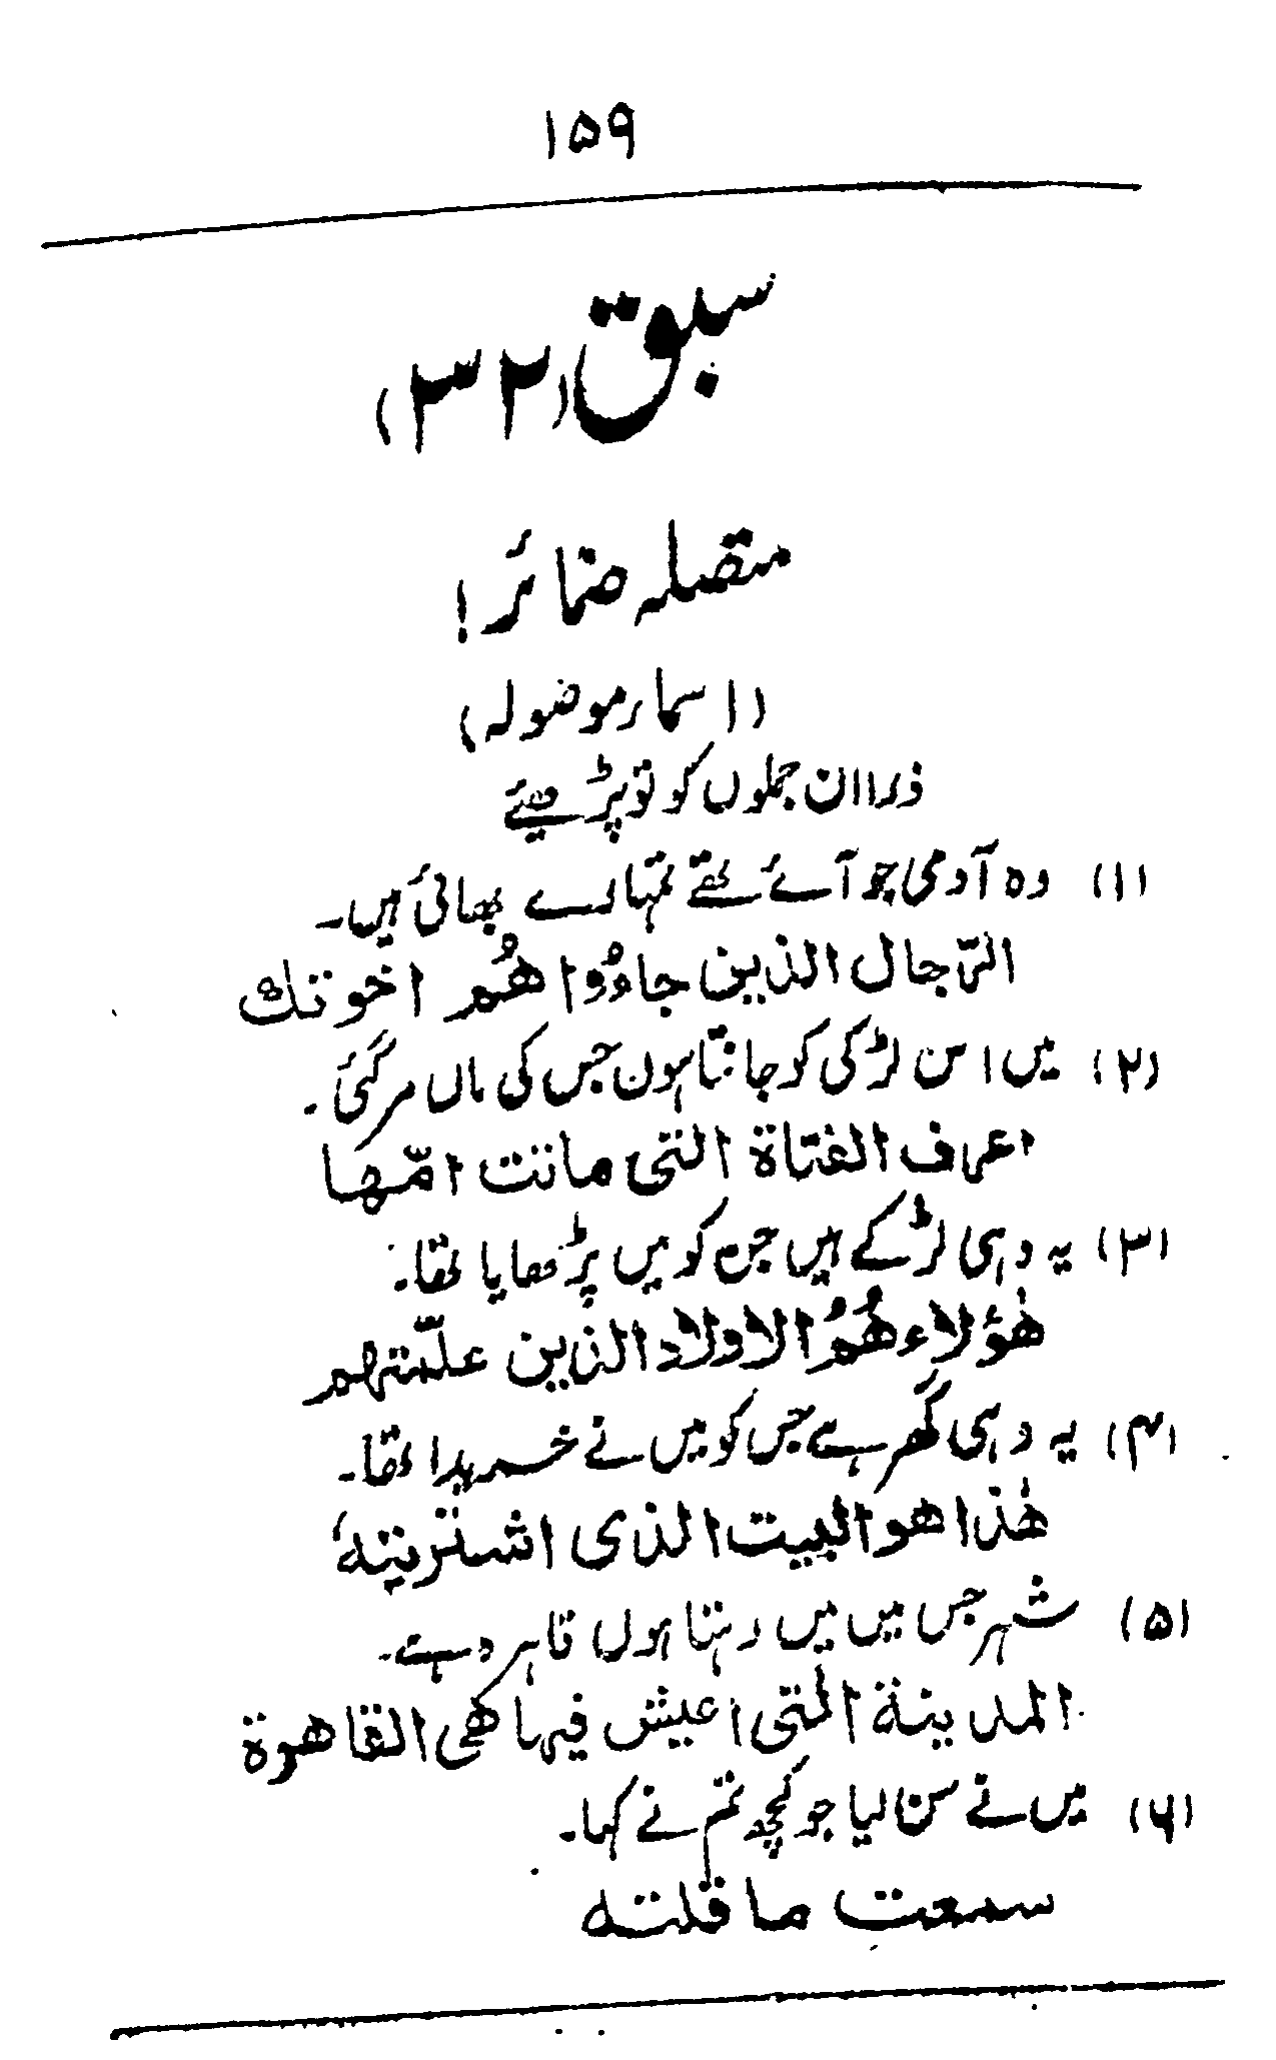 ۱۵۹
سبق (۳۲)
متصلہ ضمائر!
(اسمار موضولہ)
ذرا ان جملوں کو تو پڑھیئے
(۱) وہ آدمی جو آئے تھے تمہارے بھائی ہیں۔
الرّجال الذین جاءُوا هُم اخوتك
(۲) میں اس لڑکی کو جانتا ہون جس کی ماں مر گئی۔
اعرف الفتاة التی ماتت امّها
(۳) یہ وہی لڑکے ہیں جن کو میں پڑھایا تھا۔
هٰؤلاء هُمُ الاولاد الذین علّمتهم
(۴) یہ وہی گھر ہے جس کو میں نے خریدا تھا۔
هٰذا هو البیت الذی اشتریتهٗ
(۵) شہر جس میں میں رہتا ہوں قاہرہ ہے۔
المدینة التی اعیش فیها هی القاهرة
(۶) میں نے سن لیا جو کچھ تم نے کہا۔
سمعت ما قلته